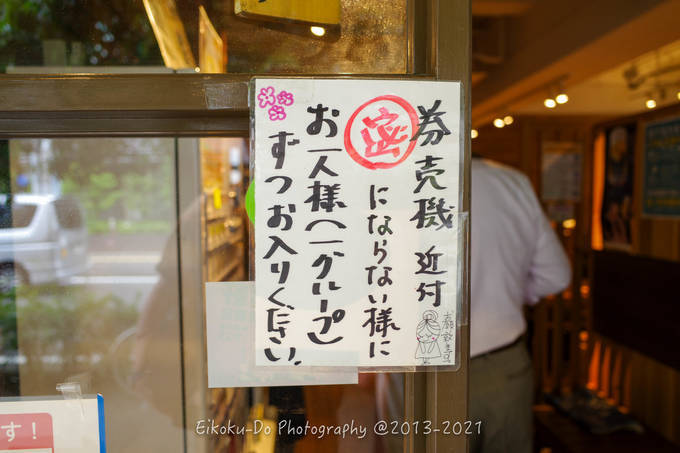 券売機 近付
密 にならない様に
お一人様(一グループ)
ずつお入りください。
す!
Eikoku-Do Photography @2013-2021